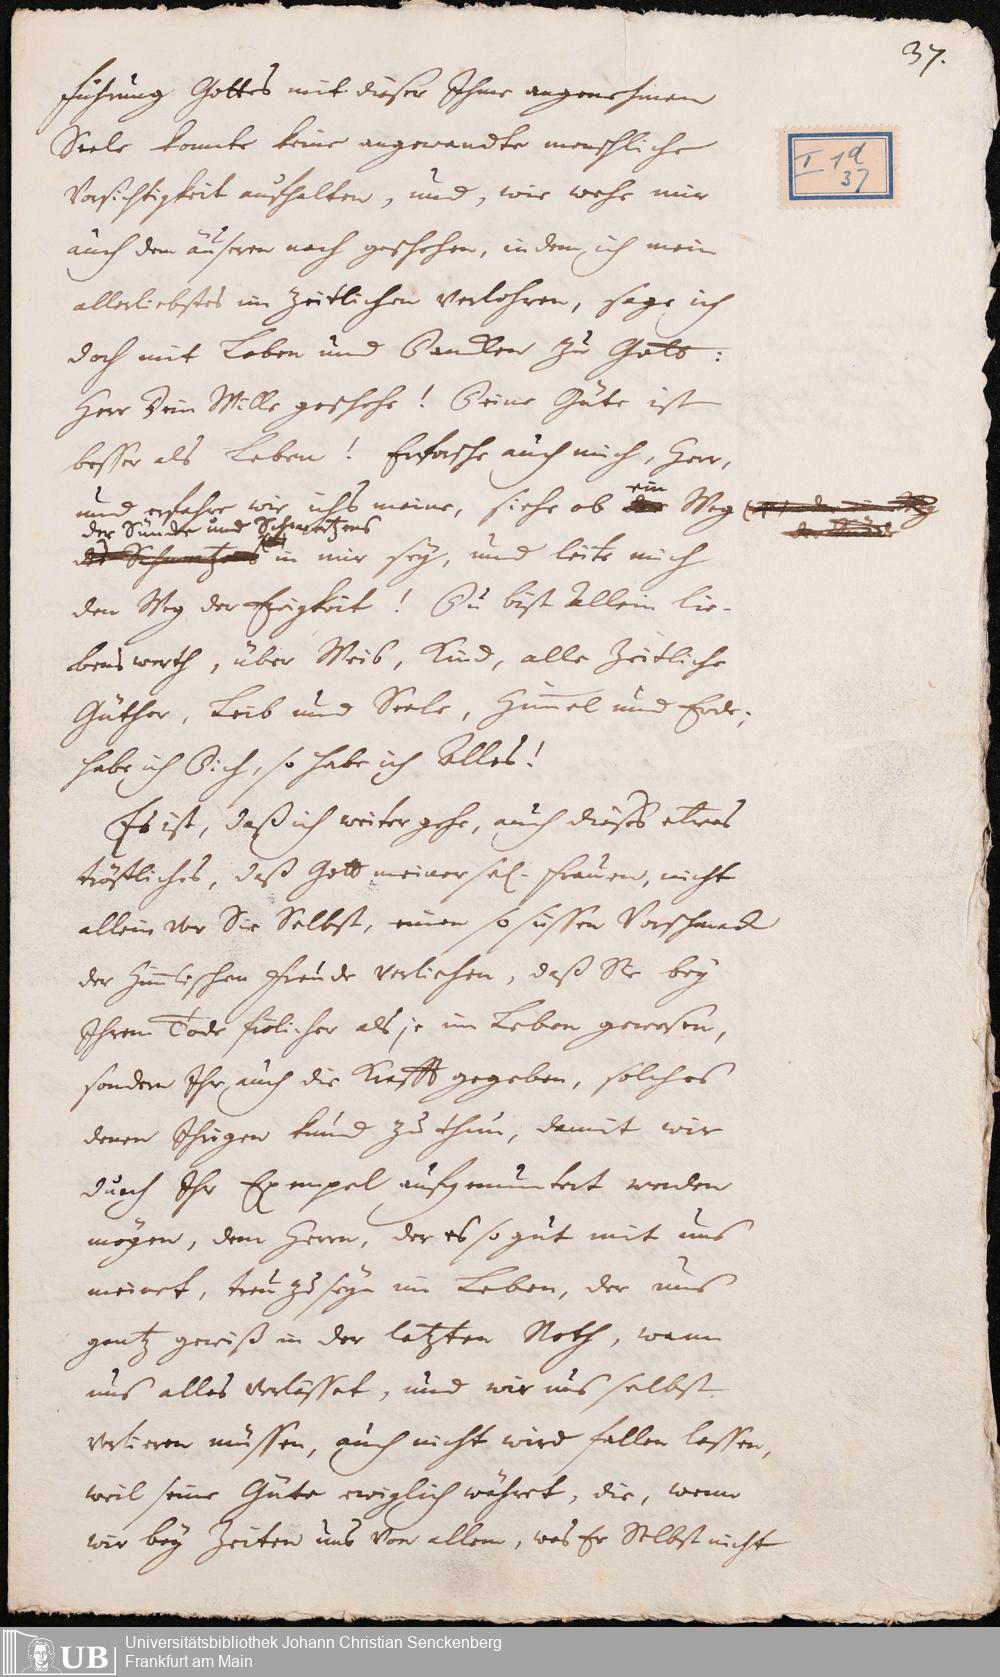 37.
I 1d
37
Führung Gottes mit dieser Ihme angenehmen
Seele konnte keine angewandte menschliche
Vorsichtigkeit aufhalten, und, wie wehe mir
auch dem äuseren nach geschehen, indem ich mein
allerliebstes im Zeitlichen verlohren, sage ich
doch mit Loben und Dancken zu Gott:
Herr Dein Wille geschehe! Deine Güte ist
besser als Leben! Erforsche auch mich, Herr,
und erfahre wie ichs meine, siehe ob ein Weg
der Sünde und Schmertzens
in mir sey, und leite mich
den Weg der Ewigkeit! Du bist allein lie-
benswerth, über Weib, Kind, alle Zeitliche
Güther, Leib und Seele, Him̄el und Erde;
habe ich Dich, so habe ich Alles!
Es ist, daß ich weiter gehe, auch dieses etwas
tröstliches, daß Gott meiner sel. Frauen, nicht
allein vor Sie Selbst, einen so süssen Vorschmack
der Him̄lischen Freude verliehen, daß Sie bey
Ihrem Tode frölicher als je im Leben gewesen,
sondern Ihr auch die Krafft gegeben, solches
denen Ihrigen kund zu thun, damit wir
durch Ihr Exempel aufgemuntert werden
mögen, dem Herrn, der es so gut mit uns
meinet, treu zu seyn im Leben, der uns
gantz gewiß in der letzten Noth, wann
uns alles verlässet, und wir uns selbst
verlieren müssen, auch nicht wird fallen lassen,
weil seine Güte ewiglich währet, die, wenn
wir bey Zeiten uns von allem, was Er Selbst nicht
UB
Universitätsbibliothek Johann Christian Senckenberg
Frankfurt am Main